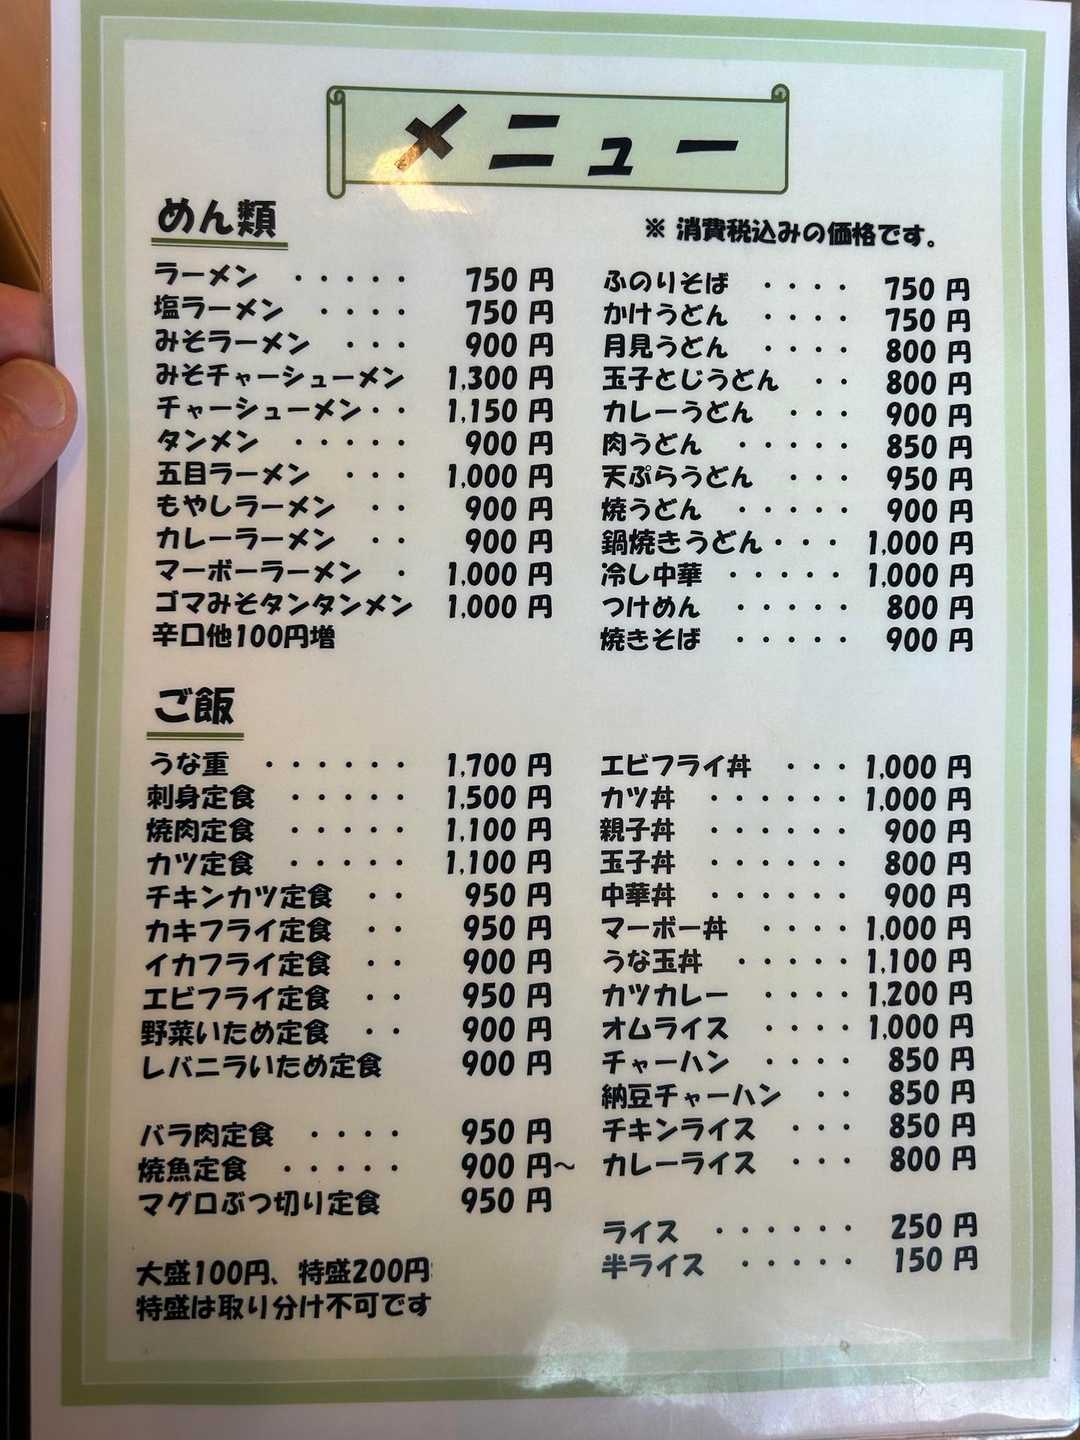 メニュー
めん類
※ 消費税込みの価格です。
ラーメン ・・・・・ 750 円
塩ラーメン ・・・・ 750 円
みそラーメン ・・・ 900 円
みそチャーシューメン 1,300 円
チャーシューメン・・ 1,150 円
タンメン ・・・・・ 900 円
五目ラーメン ・・・ 1,000 円
もやしラーメン ・・ 900 円
カレーラーメン ・・ 900 円
マーボーラーメン ・ 1,000 円
ゴマみそタンタンメン 1,000 円
辛口他100円増
ふのりそば ・・・・ 750 円
かけうどん ・・・・ 750 円
月見うどん ・・・・ 800 円
玉子とじうどん ・・ 800 円
カレーうどん ・・・ 900 円
肉うどん ・・・・・ 850 円
天ぷらうどん ・・・ 950 円
焼うどん ・・・・・ 900 円
鍋焼きうどん・・・ 1,000 円
冷し中華 ・・・・・ 1,000 円
つけめん ・・・・・ 800 円
焼きそば ・・・・・ 900 円
ご飯
うな重 ・・・・・・ 1,700 円
刺身定食 ・・・・・ 1,500 円
焼肉定食 ・・・・・ 1,100 円
カツ定食 ・・・・・ 1,100 円
チキンカツ定食 ・・ 950 円
カキフライ定食 ・・ 950 円
イカフライ定食 ・・ 900 円
エビフライ定食 ・・ 950 円
野菜いため定食 ・・ 900 円
レバニラいため定食 900 円
バラ肉定食 ・・・・ 950 円
焼魚定食 ・・・・・ 900 円～
マグロぶつ切り定食 950 円
大盛100円、特盛200円
特盛は取り分け不可です
エビフライ丼 ・・・ 1,000 円
カツ丼 ・・・・・・ 1,000 円
親子丼 ・・・・・・ 900 円
玉子丼 ・・・・・・ 800 円
中華丼 ・・・・・・ 900 円
マーボー丼 ・・・・ 1,000 円
うな玉丼 ・・・・・ 1,100 円
カツカレー ・・・・ 1,200 円
オムライス ・・・・ 1,000 円
チャーハン ・・・・ 850 円
納豆チャーハン ・・ 850 円
チキンライス ・・・ 850 円
カレーライス ・・・ 800 円
ライス ・・・・・・ 250 円
半ライス ・・・・・ 150 円